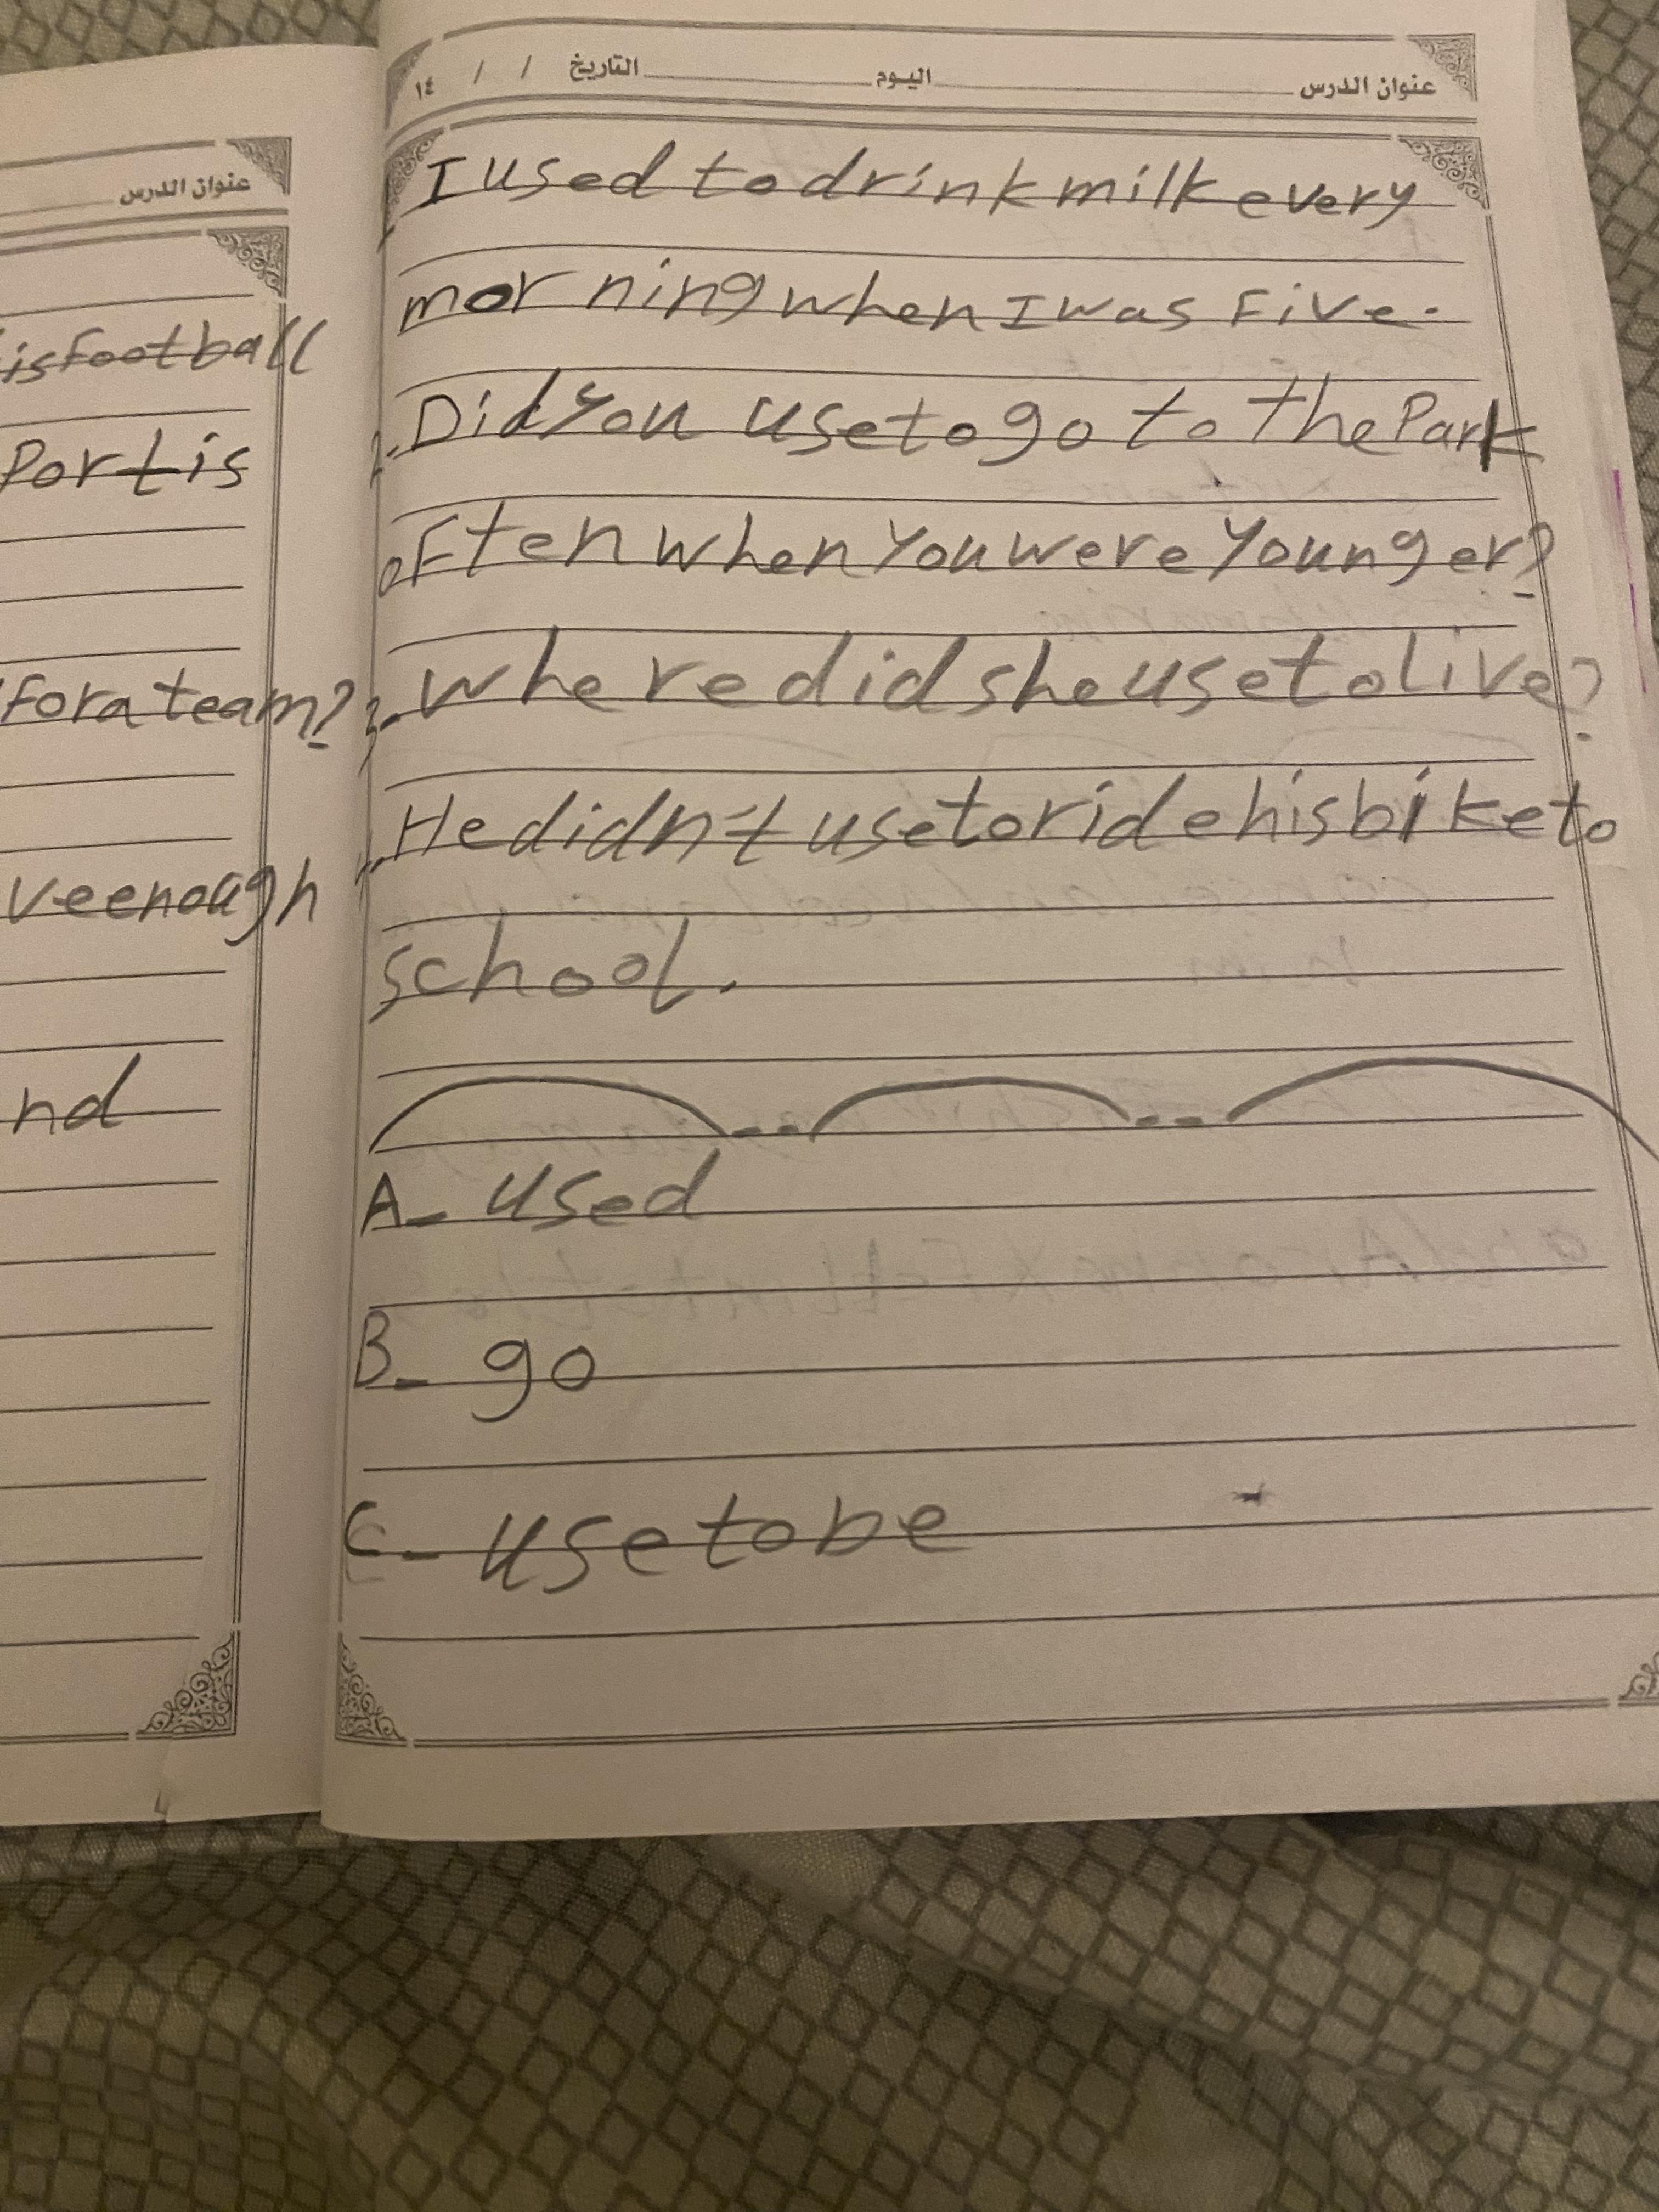 عنوان الدرس
is football
Port is
for a team?
ve enough
nd
عنوان الدرس اليوم التاريخ / / ١٤
1- I used to drink milk every
morning when I was Five.
2. Did You use to go to the Park
oFten when You were Younger?
3- where did she use to live?
He didn't use to ride his bike to
school.
A- used
B- go
C- use to be